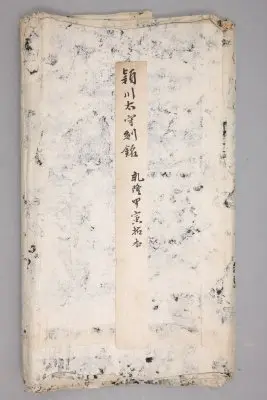 潁川太守刻銘 乾隆甲寅拓本